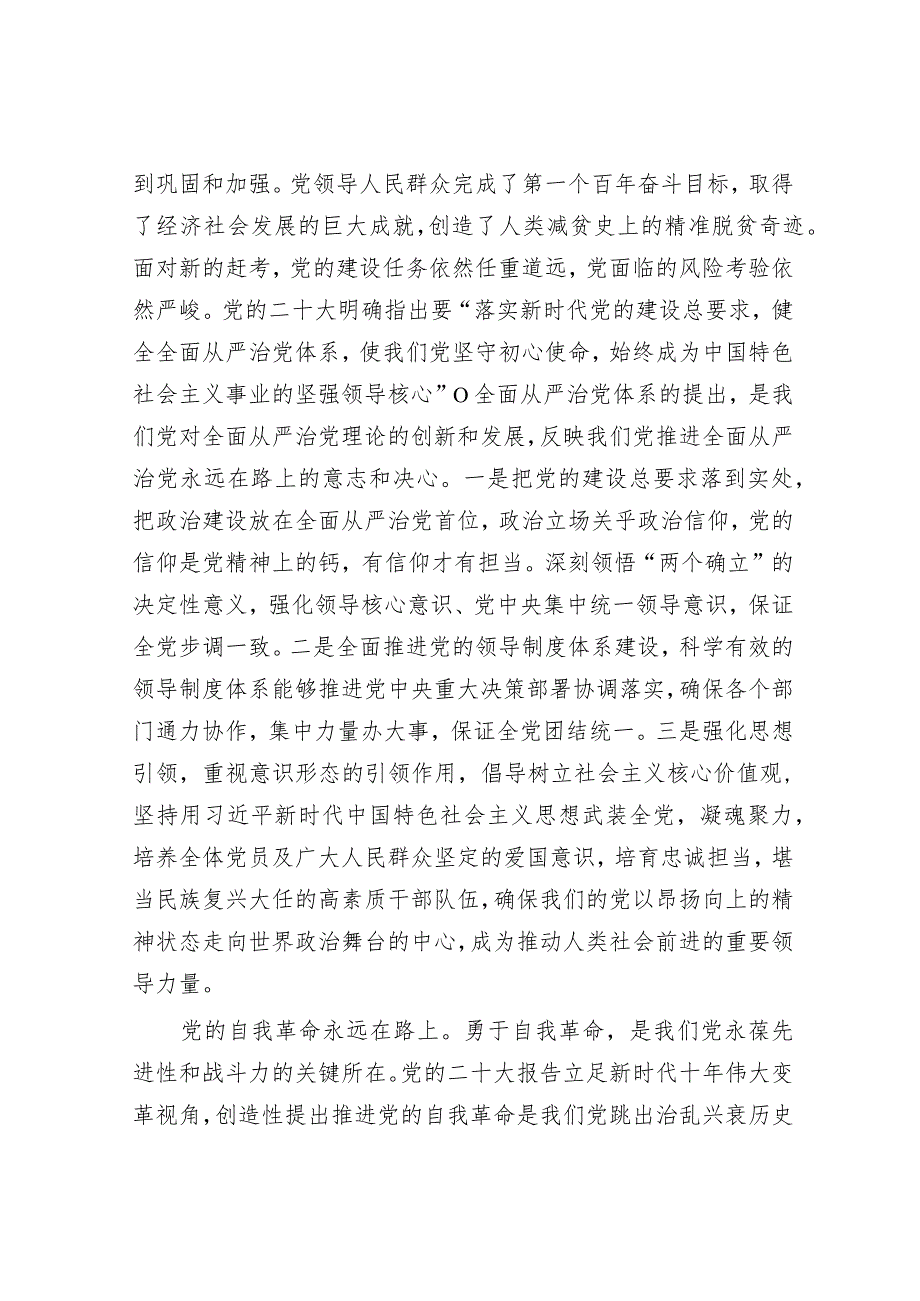 到巩固和加强。党领导人民群众完成了第一个百年奋斗目标，取得
了经济社会发展的巨大成就，创造了人类减贫史上的精准脱贫奇迹。
面对新的赶考，党的建设任务依然任重道远，党面临的风险考验依
然严峻。党的二十大明确指出要“落实新时代党的建设总要求，健
全全面从严治党体系，使我们党坚守初心使命，始终成为中国特色
社会主义事业的坚强领导核心”O全面从严治党体系的提出，是我
们党对全面从严治党理论的创新和发展，反映我们党推进全面从严
治党永远在路上的意志和决心。一是把党的建设总要求落到实处，
把政治建设放在全面从严治党首位，政治立场关乎政治信仰，党的
信仰是党精神上的钙，有信仰才有担当。深刻领悟“两个确立”的
决定性意义，强化领导核心意识、党中央集中统一领导意识，保证
全党步调一致。二是全面推进党的领导制度体系建设，科学有效的
领导制度体系能够推进党中央重大决策部署协调落实，确保各个部
门通力协作，集中力量办大事，保证全党团结统一。三是强化思想
引领，重视意识形态的引领作用，倡导树立社会主义核心价值观，
坚持用习近平新时代中国特色社会主义思想武装全党，凝魂聚力，
培养全体党员及广大人民群众坚定的爱国意识，培育忠诚担当，堪
当民族复兴大任的高素质干部队伍，确保我们的党以昂扬向上的精
神状态走向世界政治舞台的中心，成为推动人类社会前进的重要领
导力量。
党的自我革命永远在路上。勇于自我革命，是我们党永葆先
进性和战斗力的关键所在。党的二十大报告立足新时代十年伟大变
革视角，创造性提出推进党的自我革命是我们党跳出治乱兴衰历史